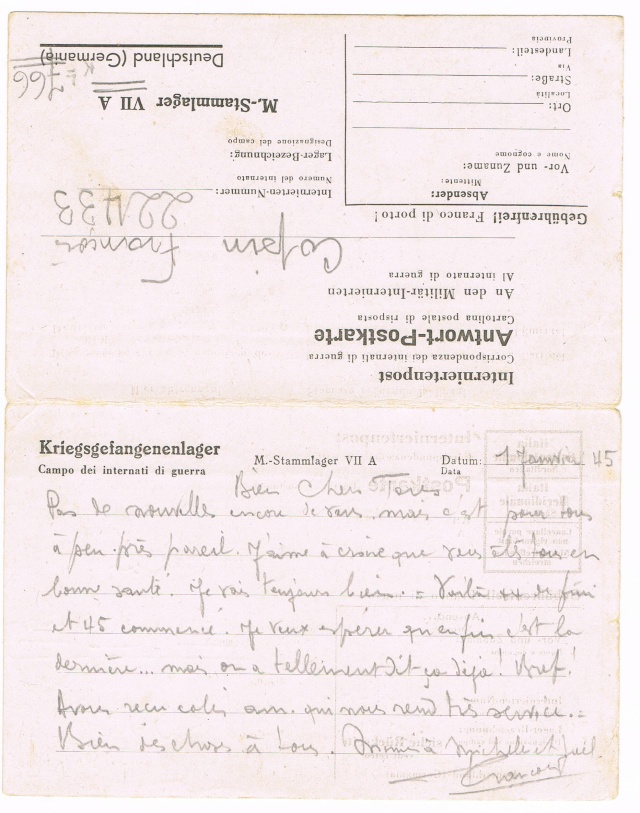 Interniertenpost
Corrispondenza dei internati di guerra
Antwort-Postkarte
Cartolina postale di risposta
An den Militär-Internierten
Al internato di guerra
François
Gebührenfrei! Franco di porto!
Absender:
Mittente:
Vor- und Zuname:
Nome e cognome
Ort:
Località
Straße:
Via
Landesteil:
Provincia
Internierten-Nummer: 22433
Numero del internato
Lager-Bezeichnung:
Designazione del campo
M.-Stammlager VII A
766
Deutschland (Germania)
Kriegsgefangenenlager
Campo dei internati di guerra
M.-Stammlager VII A
Datum: 1 Janvier 45
Data
Bien Chers Tous
Pas de nouvelles encore de vous. mais c'est pour tous
à peu près pareil. J'aime à croire que vous êtes tous en
bonne santé. Je vais toujours bien. = Voilà de fini
et 45 commencé. Je veux espérer qu'enfin c'est la
dernière... mais on a tellement dit ça déjà! Bref!
Avons reçu colis am. qui nous rend très service. =
Bien des choses à tous. à Michele et
François